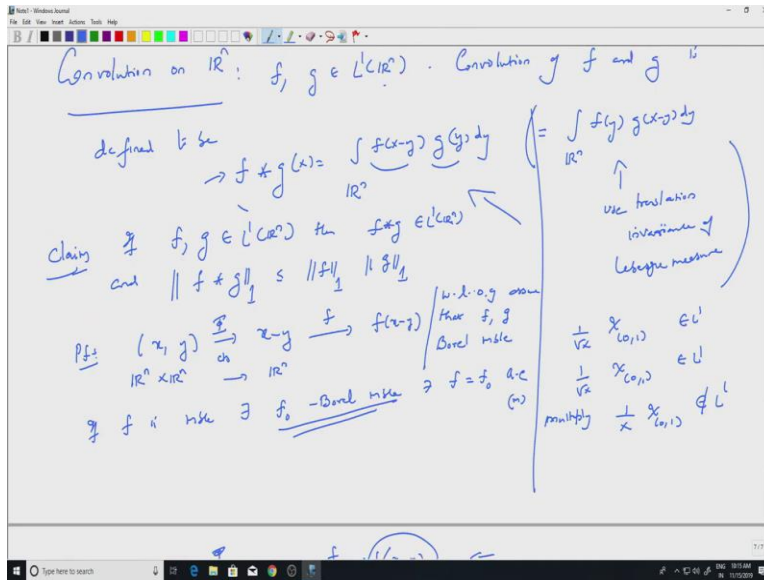 Note1 - Windows Journal
File Edit View Insert Actions Tools Help
Convolution on ℝⁿ : f, g ∈ L¹(ℝⁿ). Convolution of f and g is
defined to be
→ f * g(x) = ∫_{ℝⁿ} f(x-y) g(y) dy
( = ∫_{ℝⁿ} f(y) g(x-y) dy
↑
use translation
invariance of
Lebesgue measure )
Claim If f, g ∈ L¹(ℝⁿ) then f*g ∈ L¹(ℝⁿ)
and ‖f * g‖₁ ≤ ‖f‖₁ ‖g‖₁
Pf: (x, y) →^Φ_{cts} x-y →^f f(x-y)
ℝⁿ × ℝⁿ → ℝⁿ
w.l.o.g assume
that f, g
Borel mble
If f is mble ∃ f₀ - Borel mble ∋ f = f₀ a.e
(m)
1/√x χ_{(0,1)} ∈ L¹
1/√x χ_{(0,1)} ∈ L¹
multiply 1/x χ_{(0,1)} ∉ L¹
7/7
Type here to search
ENG 10:15 AM
IN 11/15/2019